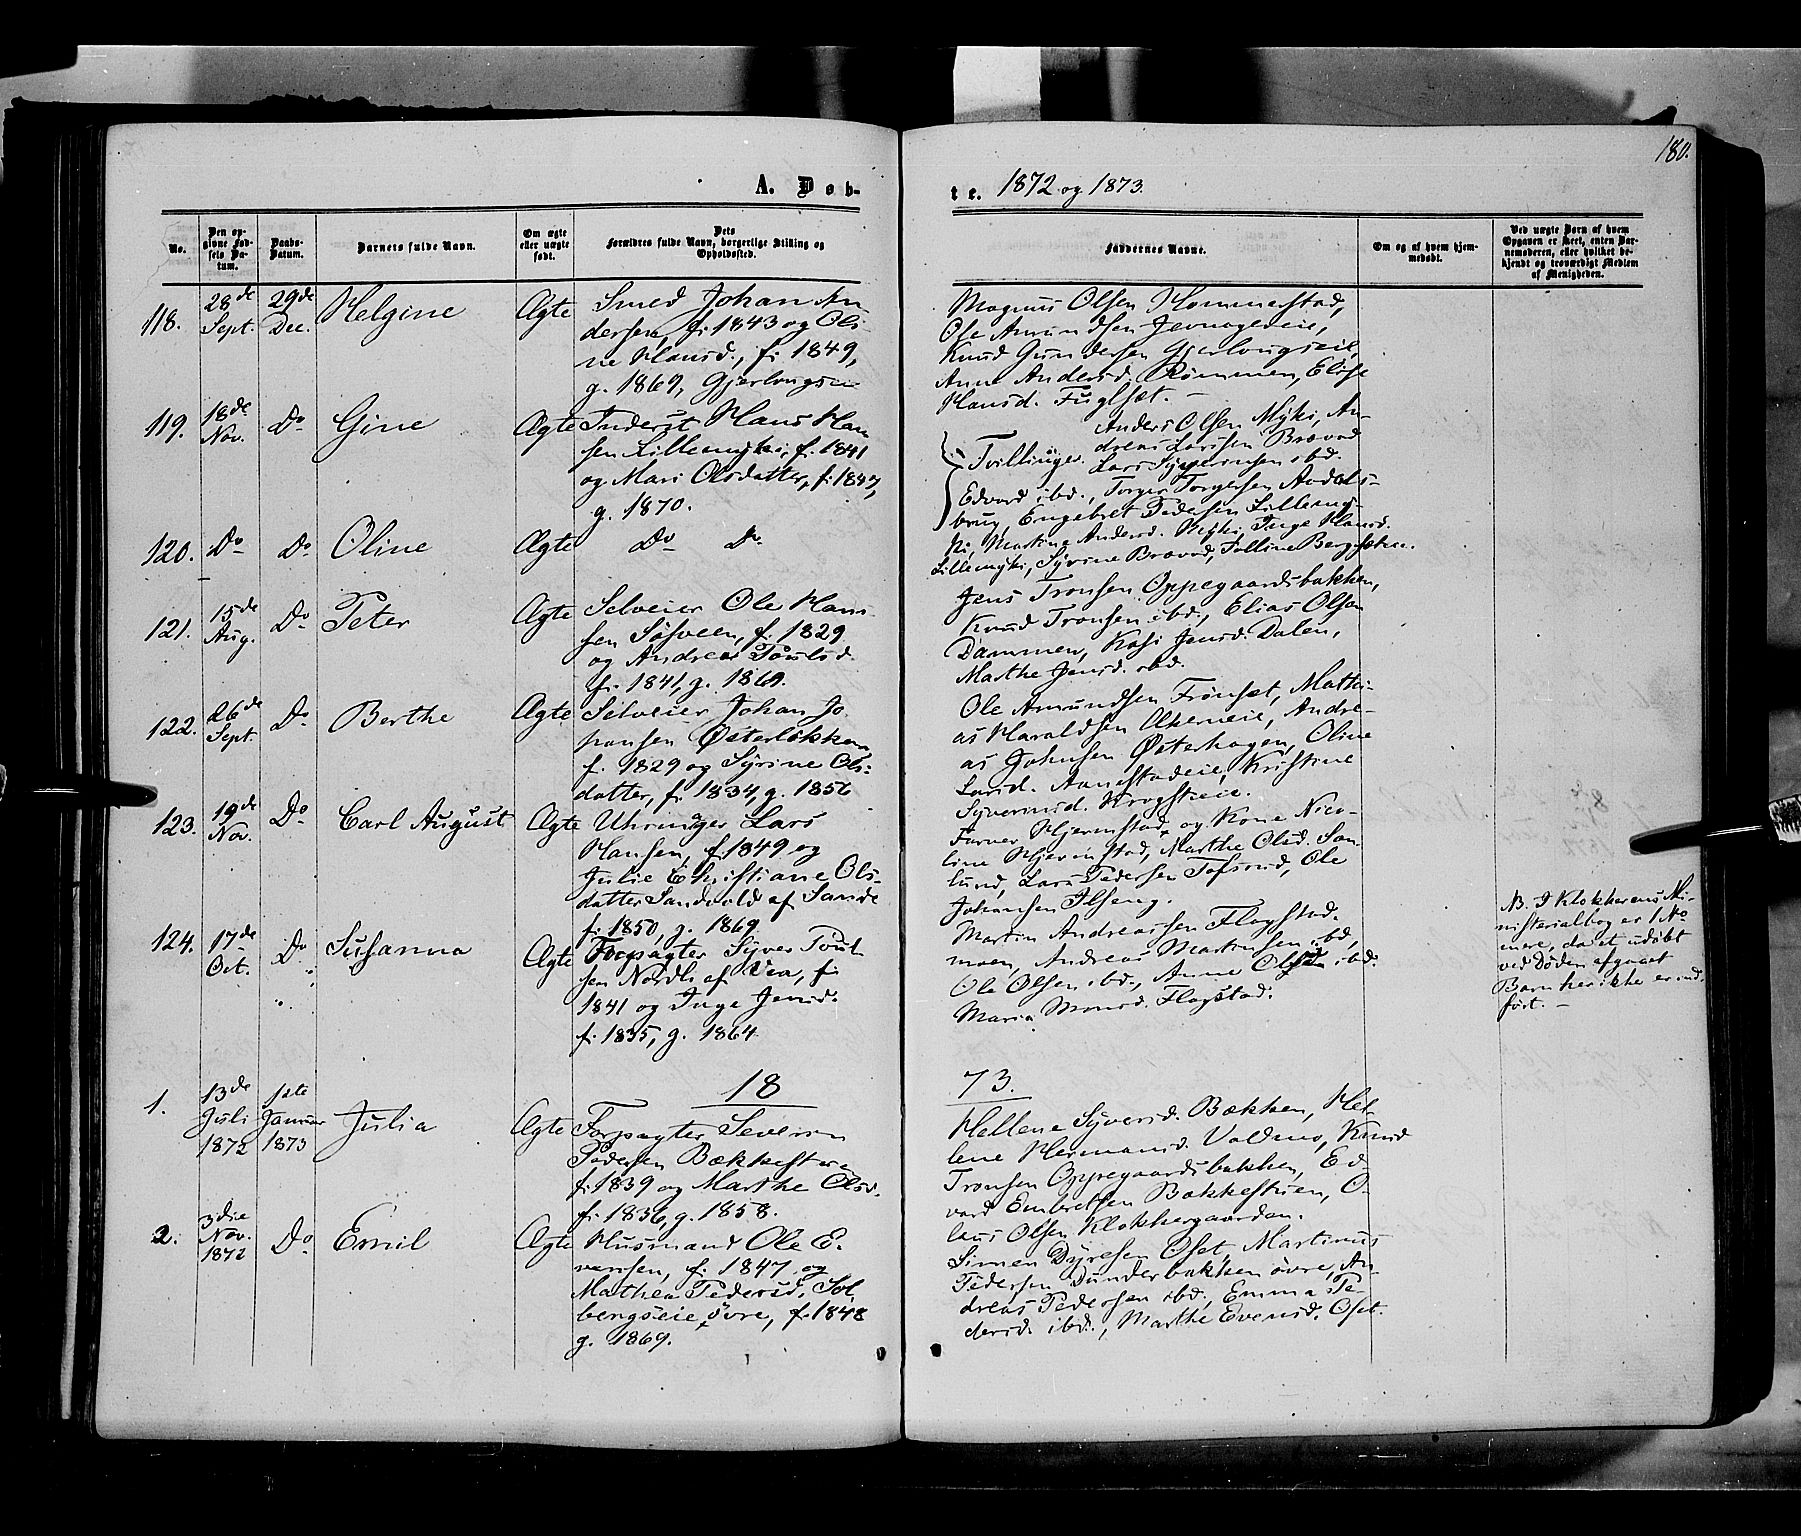 180.
A. Døb-
te. 1872 og 1873.
No.
Den op-
givne Fød-
sels Da-
tum.
Daabs-
Datum.
Barnets fulde Navn.
Om ægte
eller uægte
født.
Dets
Forældres fulde Navn, borgerlige Stilling og
Opholdssted.
Faddernes Navne.
Om og af hvem hjem-
medøbt.
Ved uægte Børn af hvem
Opgaven er skeet, enten Bar-
nemoderen, eller hvilket be-
kjendt og troværdigt Medlem
af Menigheden.
118.
28de
Sept.
29de
Dec.
Helgine
Ægte
Smed Johan An-
dersen, f. 1843 og Oli-
ne Hansd., f. 1849,
g. 1869, Gjerlougsei
Magnus Olsen Hommerstad,
Ole Amundsen Jevnageeie,
Knud Gundersen Gjerlougseie,
Anne Andersd. Rømmen, Elise
Hansd. Fuglsæt. –
119.
18de
Nov.
Do
Gine
Ægte
Inderst Hans Han-
sen Lillemyki, f. 1841
og Mari Olsdatter, f. 1847,
g. 1870.
Tvillinger.
Anders Olsen Myki, An-
dreas Larssen Bravad
Lars Syverinsen ibd.
Edvard ibd., Torger Torgersen Aadals-
brug, Engebret Pedersen Lillemy-
ki, Martine Andersd. Myki, Inge Hansd.
Lillemyki, Syrine Bravad, Palline Bergsæter.
120.
Do
Do
Oline
Ægte
Do Do
121.
15de
Aug.
Do
Peter
Ægte
Selveier Ole Han-
sen Søsveen, f. 1829
og Andrea Poulsd.
f. 1841, g. 1869.
Jens Tronsen Oppegaardsbakken,
Knud Tronsen ibd., Elias Olsen
Dammen, Kasi Jensd. Dalen,
Mathe Jensd. ibd.
122.
26de
Sept.
Do
Berthe
Ægte
Selveier Johan Jo-
hansen Østerløkken
f. 1829 og Syrine Ols-
datter, f. 1834, g. 1856
Ole Amundsen Frønsæt, Mathi-
as Haraldsen Akereeie, Andre-
as Johnsen Østerhagen, Oline
Larsd. Aanestadeie, Kristine
Syverinsd. Krogsteie.
123.
19de
Nov.
Do
Carl August
Ægte
Uhrmager Lars
Hansen, f. 1849 og
Julie Christiane Ols-
datter Sandvold af Sande
f. 1850, g. 1869
Farver Hjermstad og Kone Nico-
line Hjermstad, Marthe Olsd. San-
lund, Lars Pedersen Tofsrud, Ole
Johansen Ilseng.
124.
17de
Oct.
Do
Susanna
Ægte
Forpagter Syver Poul-
sen Nordli af Vea, f.
1841 og Inge Jensd.
f. 1835, g. 1864.
Martin Andreassen Flagstad-
moen, Andreas Martinsen ibd,
Ole Olsen ibd., Anne Olsd ibd.
Maria Monsd. Flagstad.
NB. I Klokkerens Mi-
nisterialbog er 1 No
mere, da et udøbt
ved Døden afgaaet
Barn her ikke er ind-
ført. –
1873.
1.
13de
Juli
1872
1ste
Januar
1873
Julia
Ægte
Forpagter Severin
Pedersen Bækkestuen
f. 1839 og Marthe Olsd.
f. 1836, g. 1858.
Hellene Syversd. Bækken, Hel-
lene Hermansd. Valdmo, Knud
Tronsen Oppegaardsbakken, Ed-
vard Embretsen Bækkestuen, O-
laus Olsen Klokkergaarden.
2.
3die
Nov.
1872
Do
Emil
Ægte
Husmand Ole E-
vensen, f. 1847 og
Mathea Pedersd., Sol-
bergseie øvre, f. 1848
g. 1869.
Simen Dyresen Oset, Martinus
Pedersen Dunderbakken øvre, An-
dreas Pedersen ibd., Emma Pe-
dersd. ibd., Marthe Evensd. Oset.